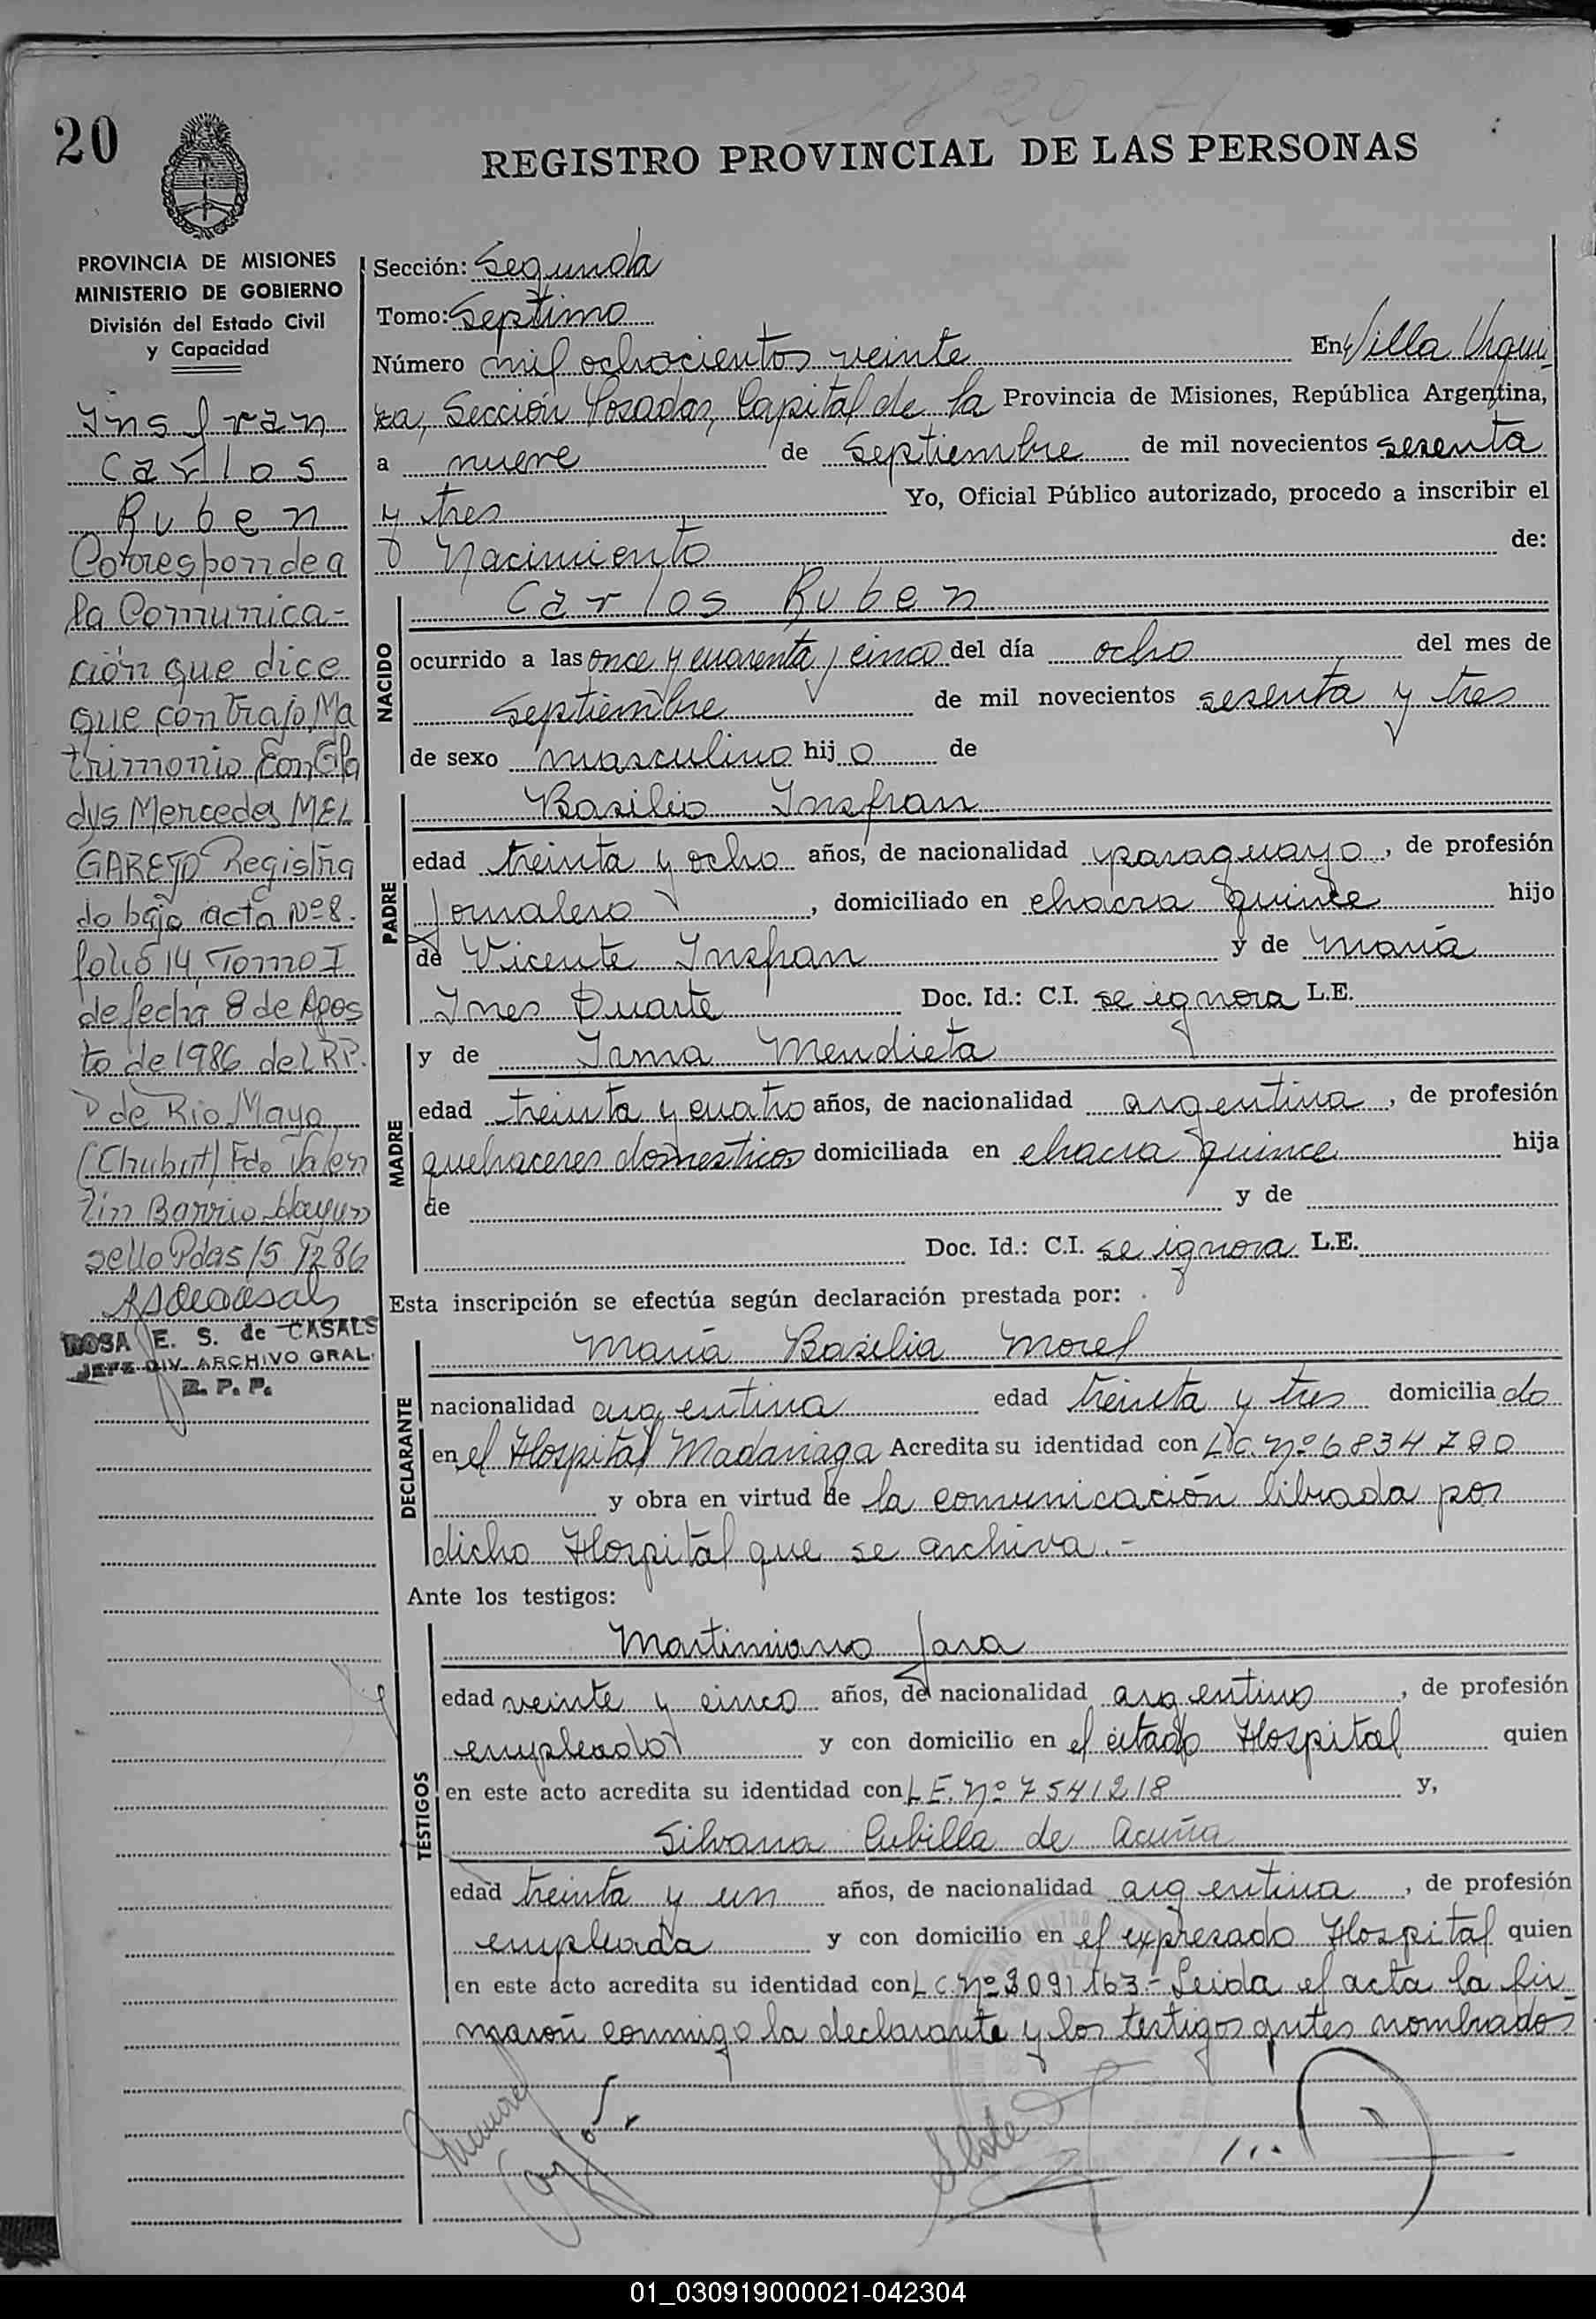 20
REGISTRO PROVINCIAL DE LAS PERSONAS
PROVINCIA DE MISIONES
MINISTERIO DE GOBIERNO
División del Estado Civil
y Capacidad
Insfran
Carlos
Ruben
Corresponde a
la Comunica-
ción que dice
que contrajo Ma
trimonio Con Gla
dys Mercedes MEL
GAREJO Registra
do bajo acta Nº 8.
folio 14, Tomo I
de fecha 8 de Agos
to de 1986 del R.P.
P de Rio Mayo
(Chubut) Fdo Valen
tin Barrio Hay un
sello Pdas 15.12.86
ROSA E. S. de CASALS
JEFE DIV. ARCHIVO GRAL.
R. P. P.
Sección: Segunda
Tomo: Septimo
Número mil ochocientos veinte En Villa Urqui
za, Sección Posadas, Capital de la Provincia de Misiones, República Argentina,
a nueve de Septiembre de mil novecientos sesenta
y tres Yo, Oficial Público autorizado, procedo a inscribir el
Nacimiento de:
NACIDO
Carlos Ruben
ocurrido a las once y cuarenta y cinco del día ocho del mes de
septiembre de mil novecientos sesenta y tres
de sexo masculino hij o de
PADRE
Basilio Insfran
edad treinta y ocho años, de nacionalidad paraguayo, de profesión
jornalero, domiciliado en chacra quince hijo
de Vicente Insfran y de María
Ines Duarte Doc. Id.: C.I. se ignora L.E.
MADRE
y de Irma Mendieta
edad treinta y cuatro años, de nacionalidad argentina, de profesión
quehaceres domesticos domiciliada en chacra quince hija
de y de
Doc. Id.: C.I. se ignora L.E.
Esta inscripción se efectúa según declaración prestada por:
DECLARANTE
María Basilia Morel
nacionalidad argentina edad treinta y tres domicilia do
en el Hospital Madariaga Acredita su identidad con L.C. Nº 6834790
y obra en virtud de la comunicación librada por
dicho Hospital que se archiva.-
Ante los testigos:
TESTIGOS
Martimiano Jara
edad veinte y cinco años, de nacionalidad argentino, de profesión
empleado y con domicilio en el citado Hospital quien
en este acto acredita su identidad con L.E. Nº 7541218 y,
Silvana Cubilla de Acuña
edad treinta y un años, de nacionalidad argentina, de profesión
empleada y con domicilio en el expresado Hospital quien
en este acto acredita su identidad con L.C. Nº 3091163- Leida el acta la fir
maron conmigo la declarante y los testigos antes nombrados
01_030919000021-042304